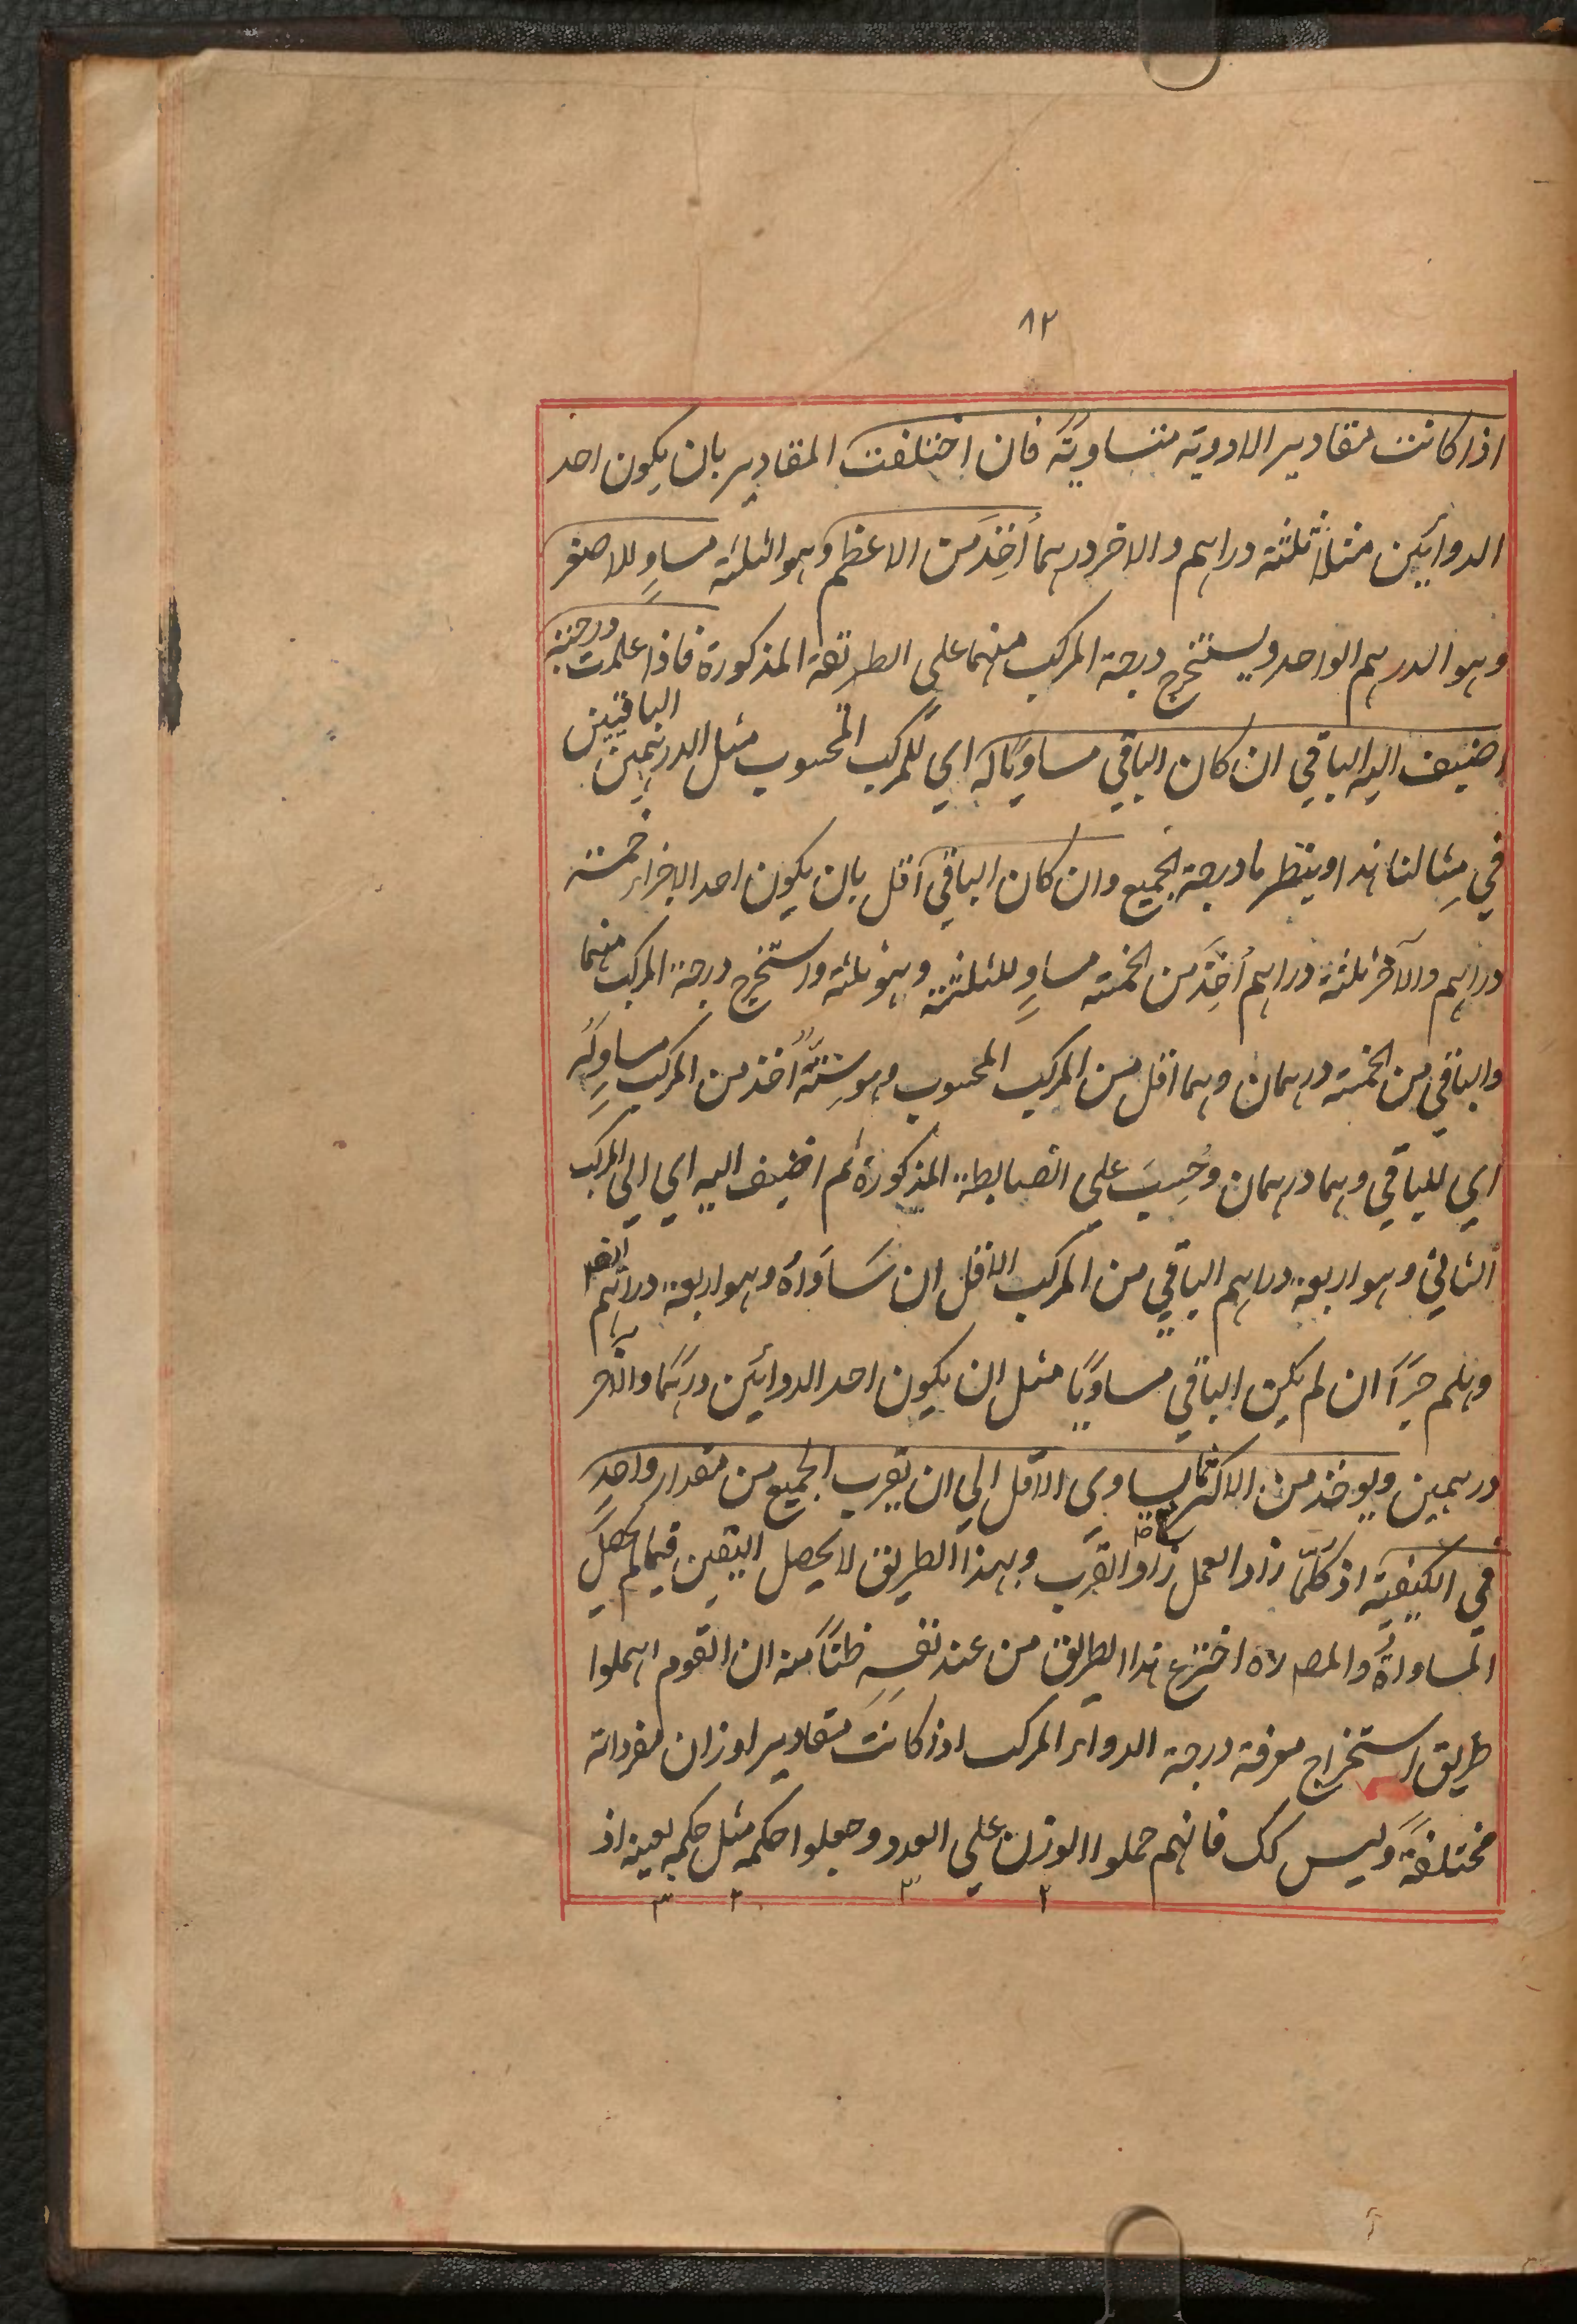 ٨٢
اذا كانت مقادير الادوية متساويةً فان اختلفت المقادير بان يكون احد
الدوائين مثلاً ثلثة دراهم والاخر درهما أُخِذَ من الاعظم وهو الثلثة مساوٍ للاصغر
وهو الدرهم الواحد ويستخرج درجة المركب منهما على الطريقة المذكورة فاذا علمت درجته
اضيف اليه الباقي ان كان الباقي مساويًا له اي للمركب المحسوب مثل الدرهمين الباقيين
في مِثالنا هذا وينظر ما درجة الجميع وان كان الباقي اقل بان يكون احد الاجزاء خمسة
دراهم والآخر ثلثة دراهم أُخِذَ من الخمسة مساوٍ للثلثة وهو ثلثة واستخرج درجة المركب منهما
والباقي من الخمسة درهمان وهما اقل من المركب المحسوب وهو سِتَّةٌ أُخذ من المركب مساوٍ له
اي للباقي وهما درهمان وحُسِبَ علي الضابطة المذكورة ثم اضيف اليه اي الي المركب
الثاني وهو اربعة دراهم الباقي من المركب الاقل ان سَاوَاهُ وهو اربعة دراهم ايضا
وهلم جرًّا ان لم يكن الباقي مساويًا مثل ان يكون احد الدوائين درهمًا والآخر
درهمين ويوخذ من الاكثر ما يساوي الاقل الي ان يقرب الجميع من مقدار واحدٍ
في الكيفية اذ كلّما زاد العمل زاد القرب وبهذا الطريق لا يحصل اليقين فيما لم يحصل
المساواةُ والمصـ ره اخترع هذا الطريق من عند نفسِهِ ظنًّا منه ان القوم اهملوا
طريق استخراج معرفة درجة الدواء المركب اذا كانت مقادير اوزان مفرداته
مختلفةً وليس كك فانهم حملوا الوزن علي العدد وجعلوا حكمه مثل حكمه بعينه اذ